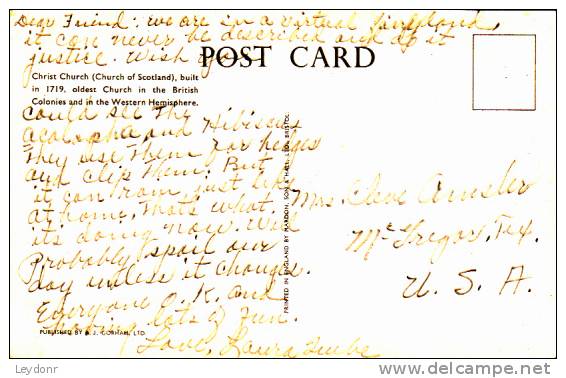 Dear Friend: we are in a virtual fairyland,
it can never be described and do it
justice. Wish you
POST CARD
Christ Church (Church of Scotland), built
in 1719, oldest Church in the British
Colonies and in the Western Hemisphere.
could see the
acalapha and Hibiscus
they use them for hedges
and clip them. But
it can rain, just like
at home, that's what
its doing now. Will
Probably spoil our
day unless it changes.
Everyone O.K. and
having lots of fun.
Love, Laura
Mrs. Dave
McGregor, Tex.
U. S. A.
PRINTED IN ENGLAND BY MARDON, SON & HALL, LTD., BRISTOL
PUBLISHED BY A. J. GORHAM, LTD
Leydonr
delcampe.net